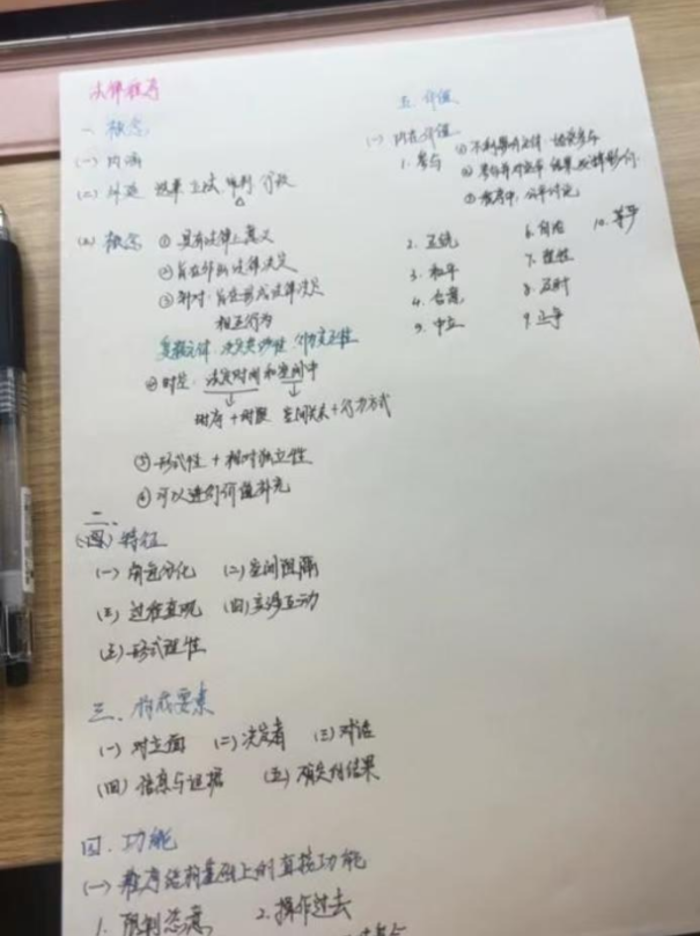 法律程序
一、概念
(一) 内涵
(二) 外延 选举 立法 审判 行政
(三) 概念 ① 具有法律上意义
② 旨在作出法律决定
③ 针对 旨在形成法律决定
相互行为
复数主体 决定 性 行为交互性
④ 时空 法定时间和空间中
时序+时限 空间关系+行为方式
⑤ 形式性+相对独立性
⑥ 可以进行价值补充
二、
(四) 特征
(一) 角色分化 (二) 空间阻隔
(三) 过程直观 (四) 交涉互动
(五) 形式理性
三、构成要素
(一) 对立面 (二) 决定者 (三) 对话
(四) 信息与证据 (五) 确定的结果
四、功能
(一) 程序结构基础上的直接功能
1. 限制恣意 2. 操作过去
五、价值
(一) 内在价值
1. 参与 ① 不利影响主体
③ 程序中,公平讨论
2. 正统 6. 自治 10. 平
3. 和平 7. 理性
4. 合意 8. 及时
5. 中立 9.